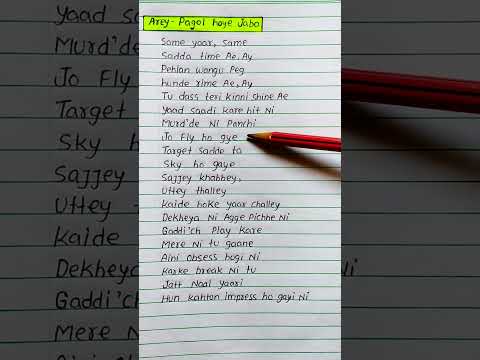 Arey- Pagol hoye Jaba
Same yaar, Same
Sadda time Ae, Ay
Pehlan wangu Peg
hunde rime Ae, Ay
Tu dass teri kinni shine Ae
Yaad saadi kare hit Ni
Murd'de Ni Panchi
Jo Fly ho gye
Target sadde ta
Sky ho gaye
Sajjey khabbey,
Uttey thalley
Kaide hoke yaar challey
Dekheya Ni Agge Pichhe Ni
Gaddi'ch Play Kare
Mere Ni tu gaane
Aini Obsess hogi Ni
Karke break Ni tu
Jatt Naal yaari
Hun kahton impress ho gayi Ni